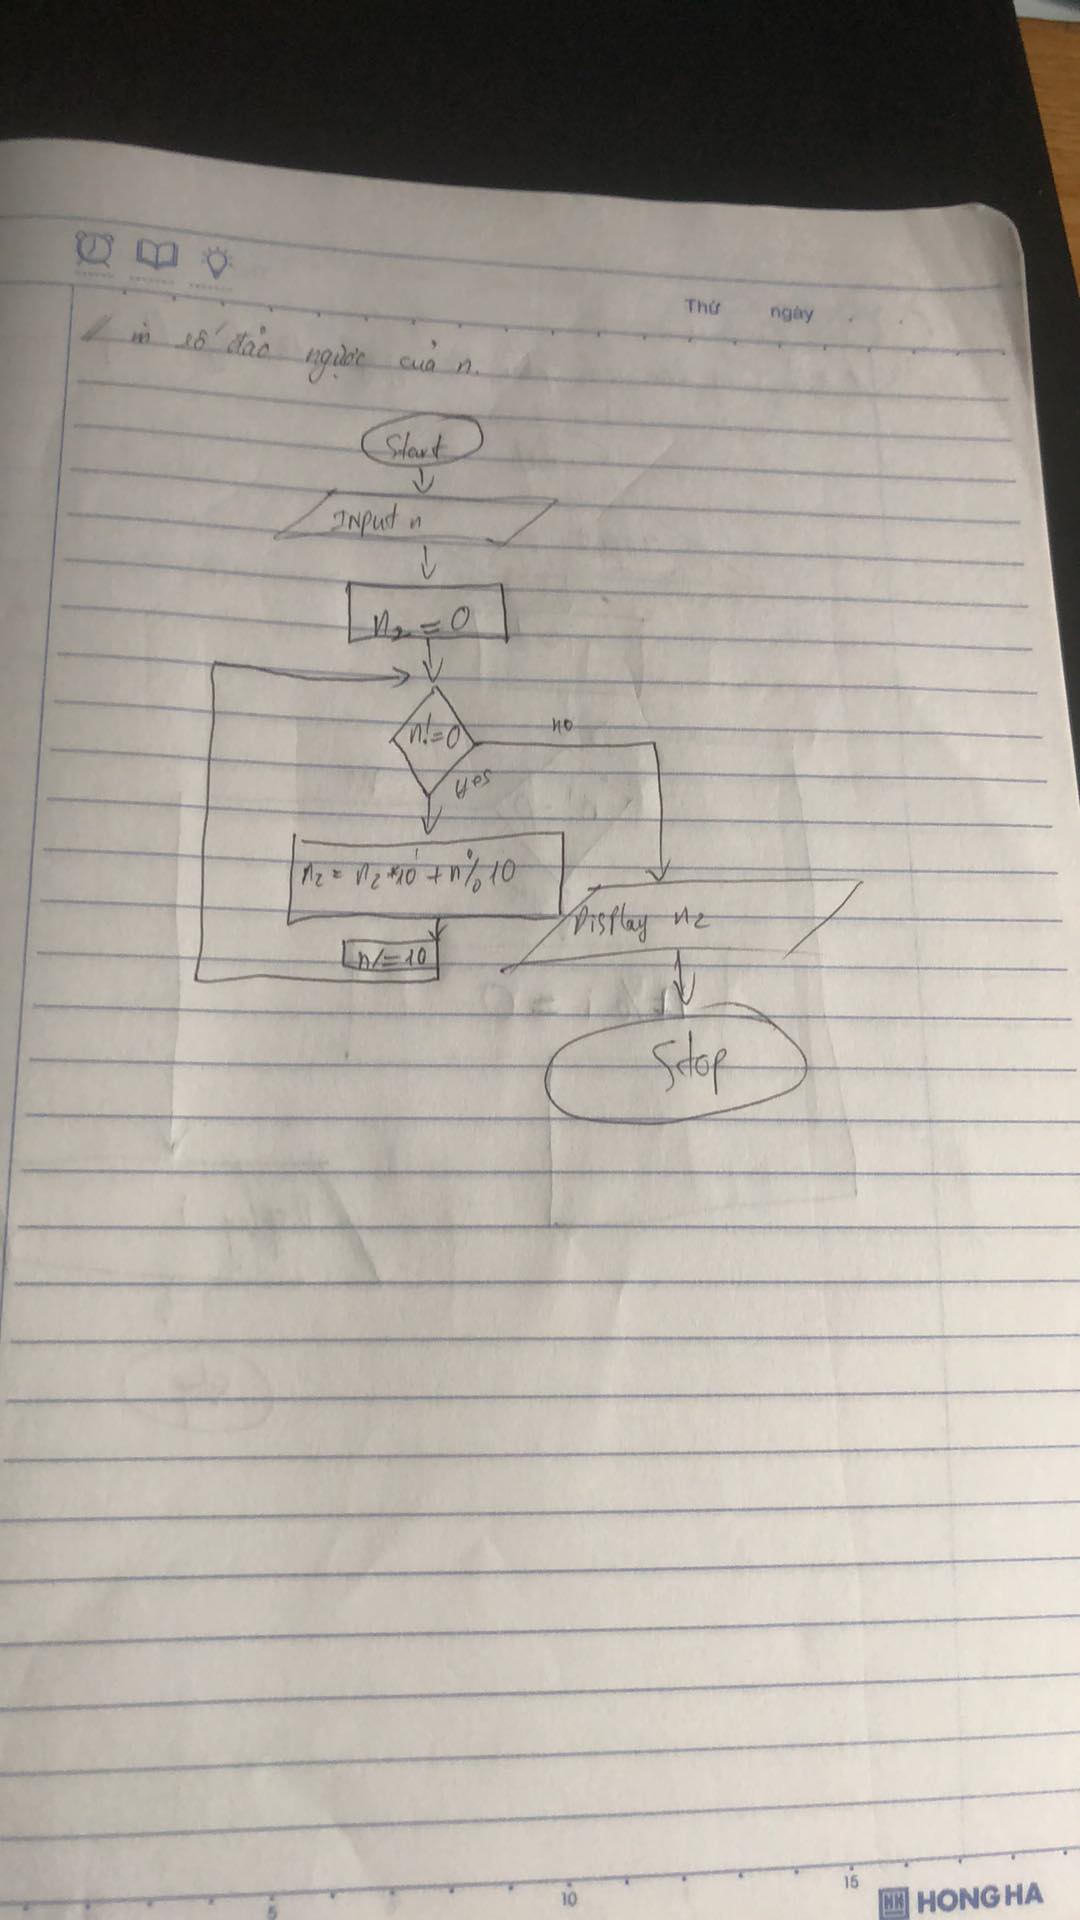 Thứ ngày
in số đảo ngược của n.
Start
INPut n
n₂ = 0
n!=0
no
yes
n₂ = n₂ *10 + n% 10
n/=10
Display n₂
Stop
5 10 15
HONG HA